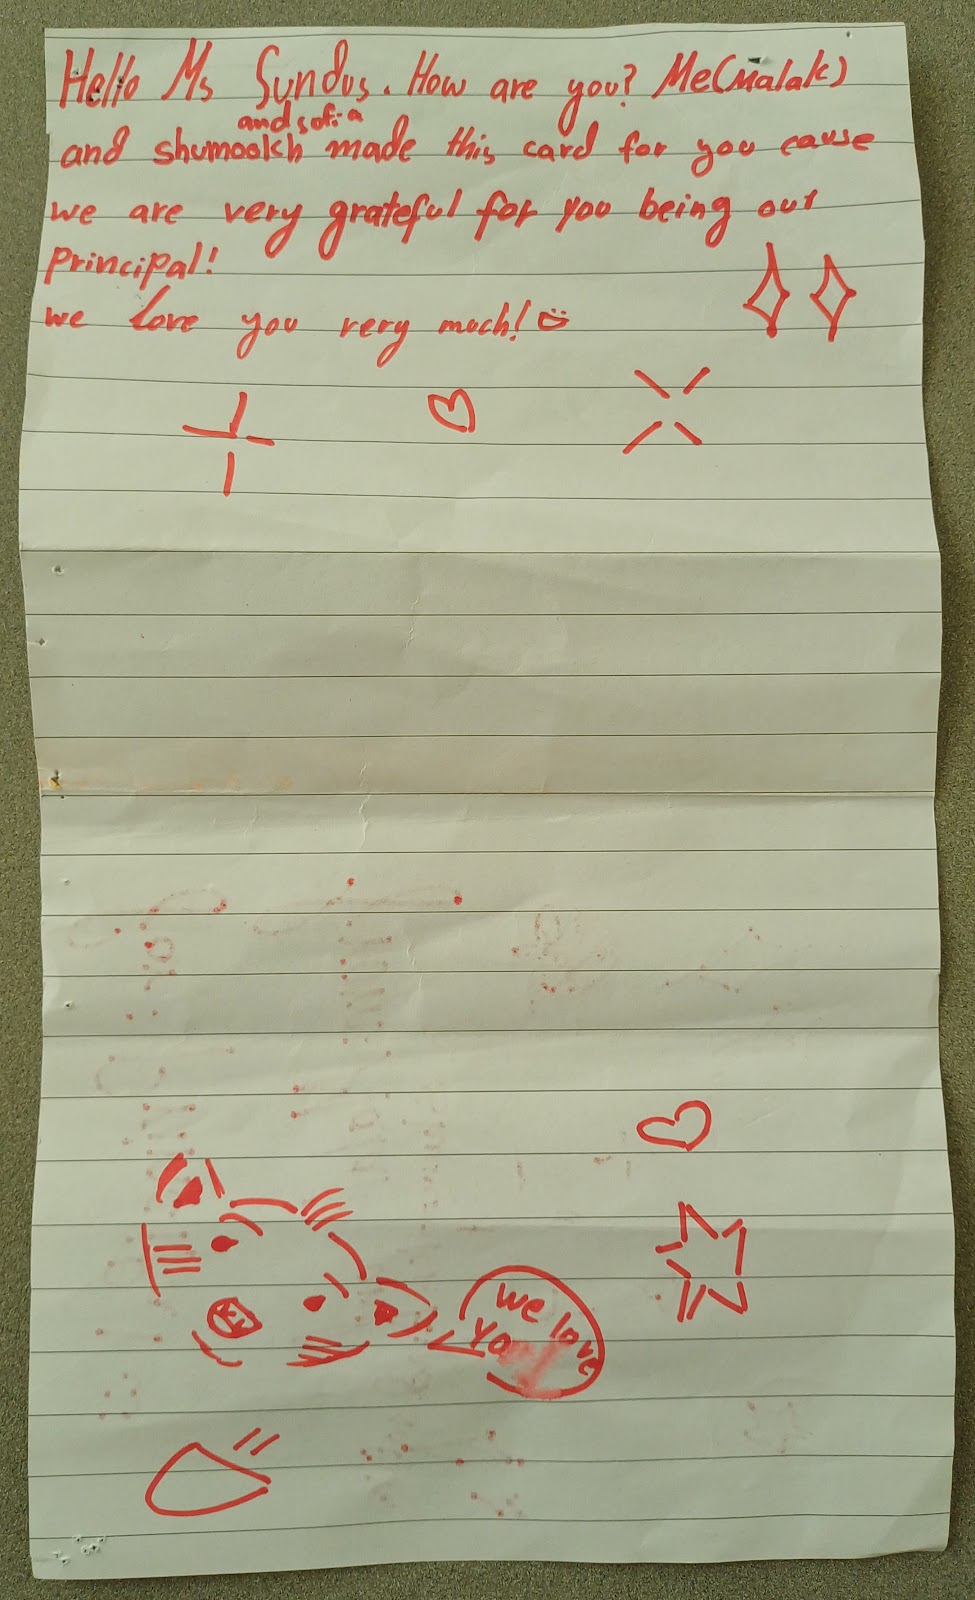 Hello Ms Sundus. How are you? Me(Malak)
and sofia
and shumookh made this card for you cause
we are very grateful for you being our
principal!
we love you very much!
we love
yo